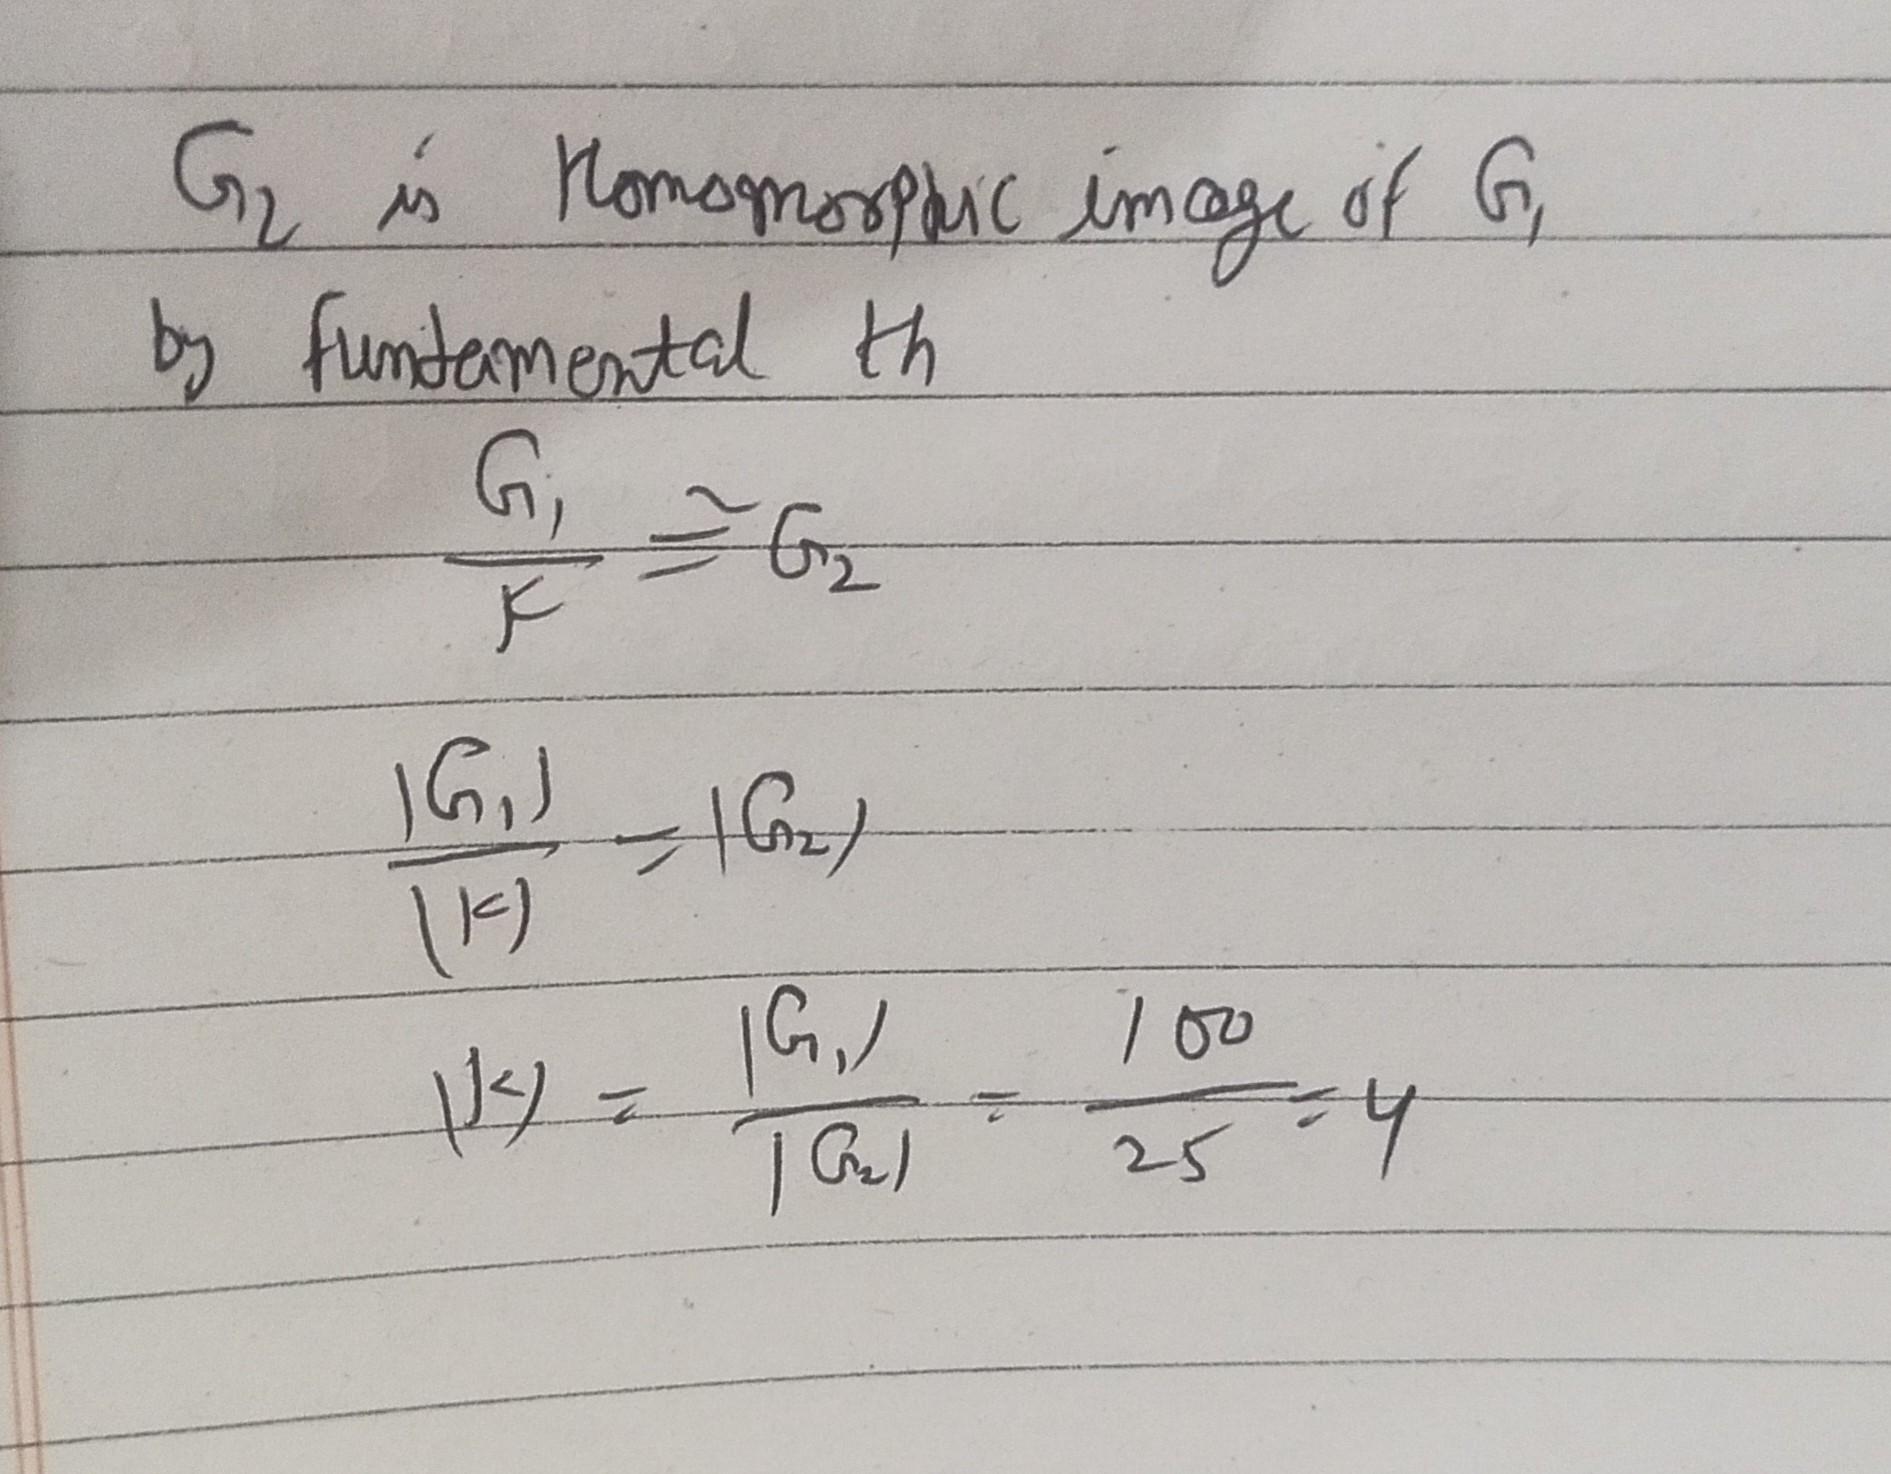 G₂ is Homomorphic image of G₁
by fundamental th
G₁/K ≅ G₂
|G₁|/|K| = |G₂|
|K| = |G₁|/|G₂| = 100/25 = 4